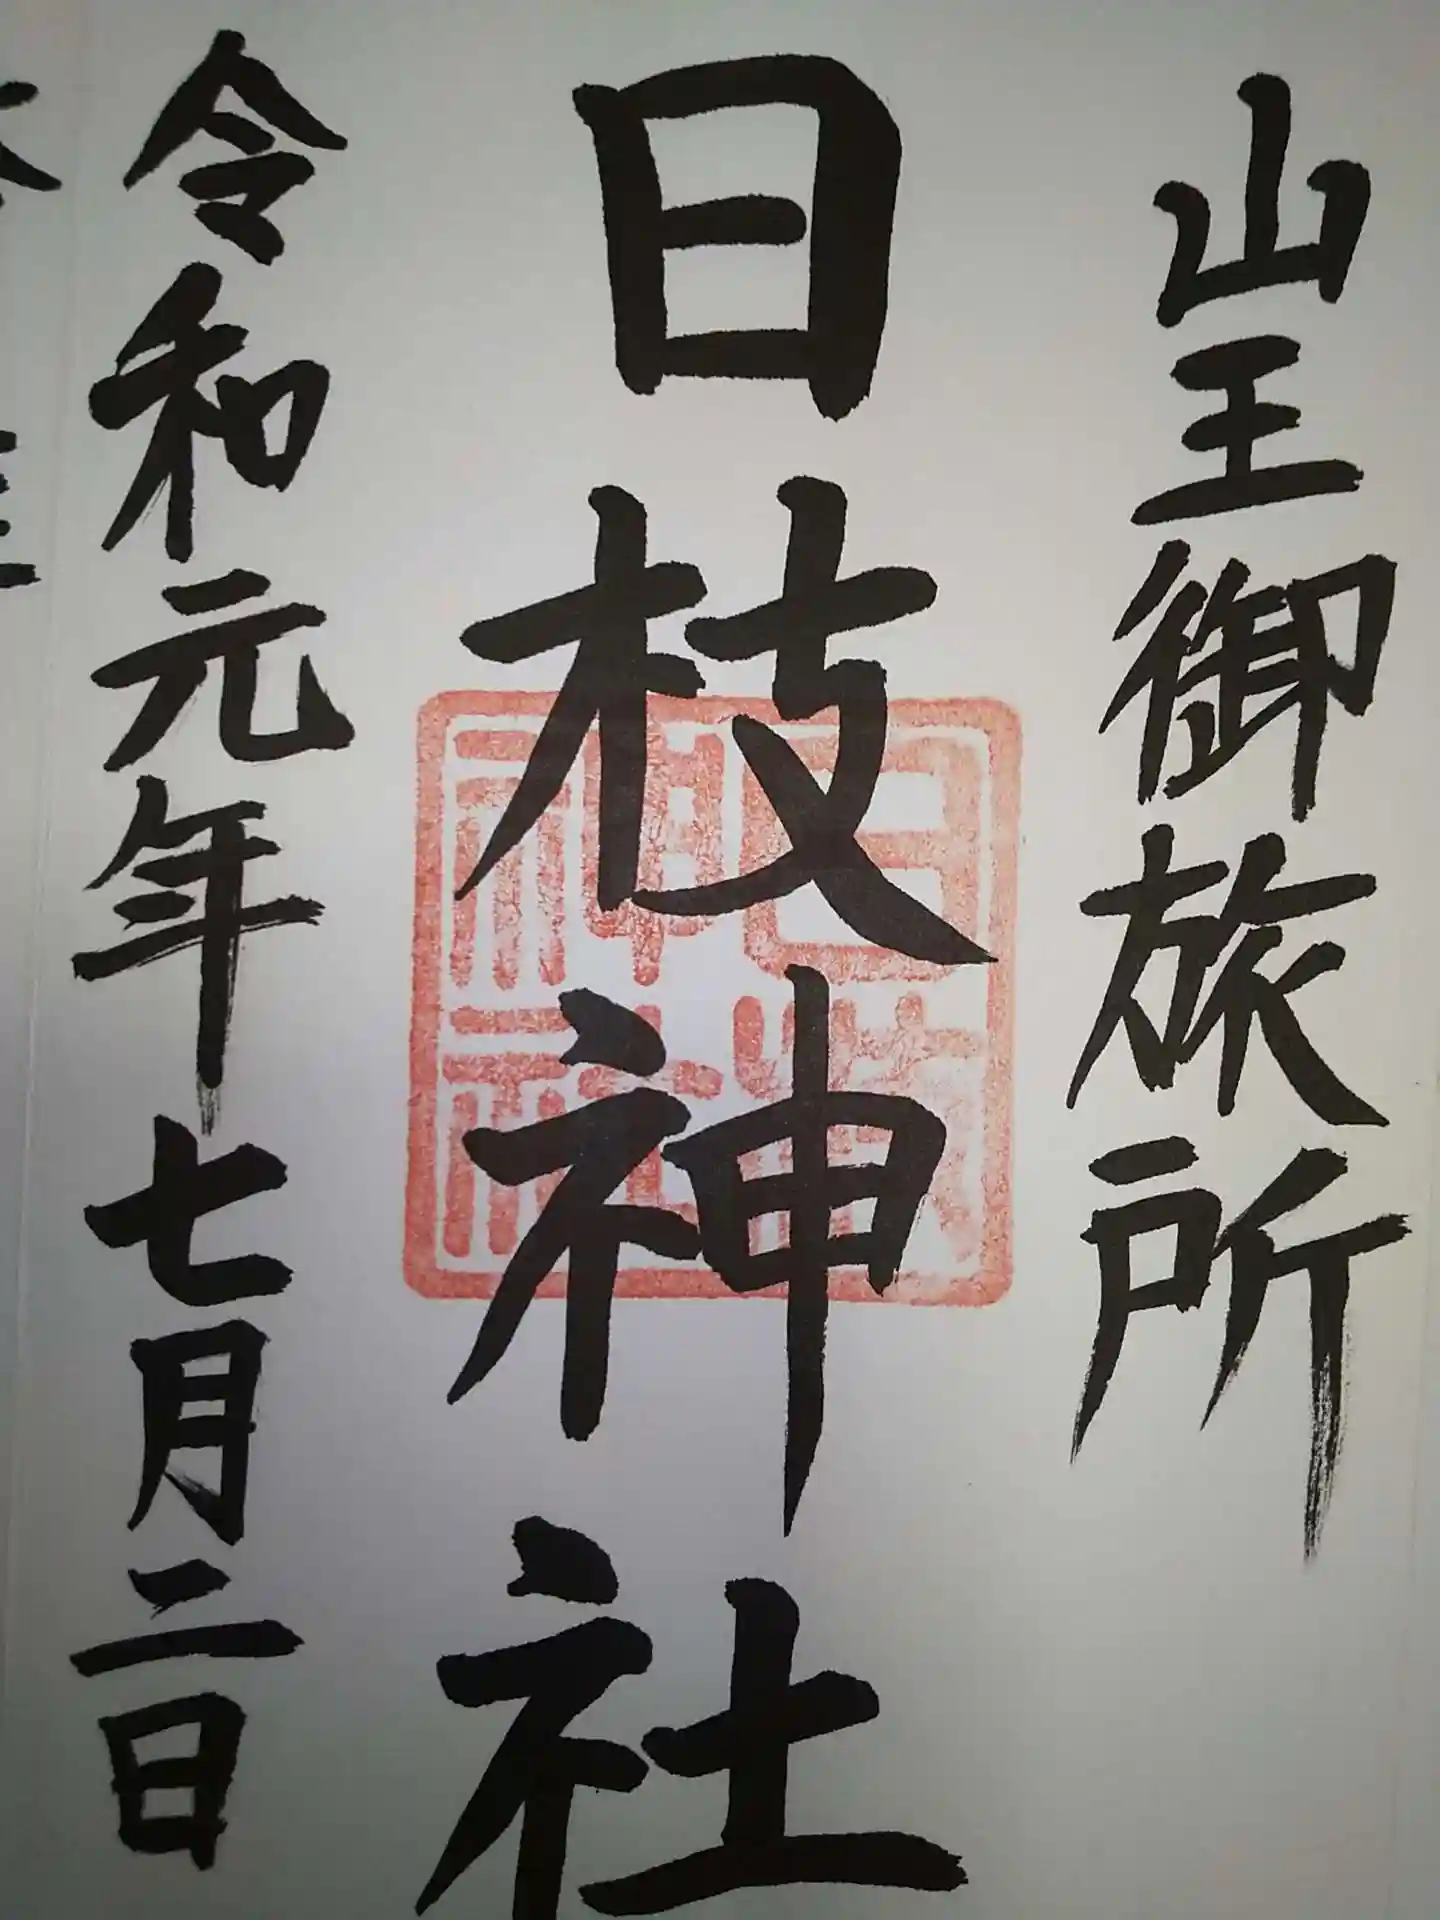 山王御旅所
日枝神社
日枝神社
令和元年七月二日